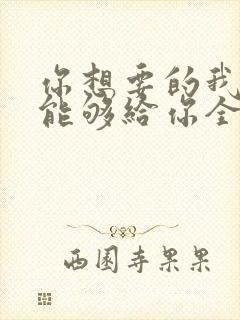 你想要的我
能够给你全
西园寺果果